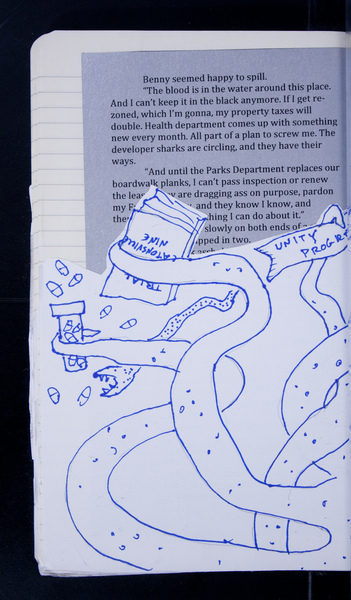 Benny seemed happy to spill.
"The blood is in the water around this place.
And I can't keep it in the black anymore. If I get re-
zoned, which I'm gonna, my property taxes will
double. Health department comes up with something
new every month. All part of a plan to screw me. The
developer sharks are circling, and they have their
ways.
"And until the Parks Department replaces our
boardwalk planks, I can't pass inspection or renew
the are dragging ass on purpose, pardon
my and they know I know, and
thing I can do about it."
slowly on both ends of
pped in two.
CATONSVILLE
NINE
TRIAL
UNITY
PROGR